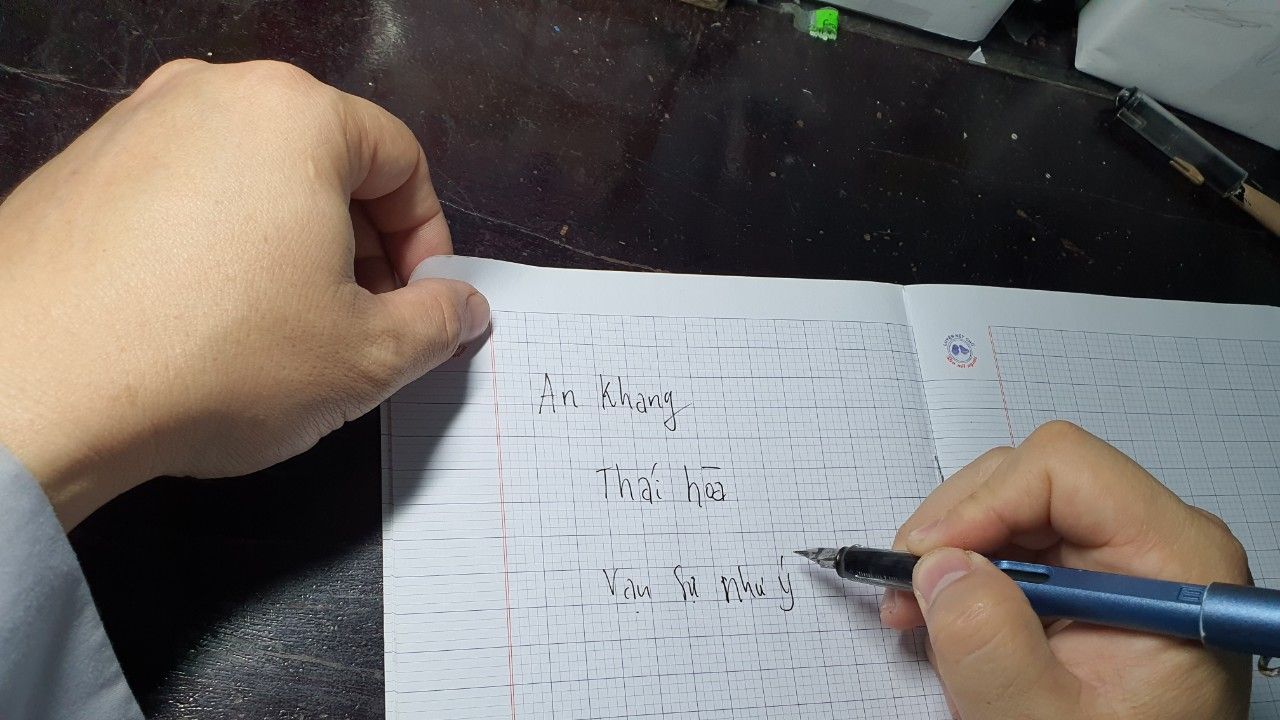 An Khang
Thái hòa
Vạn Sự như ý